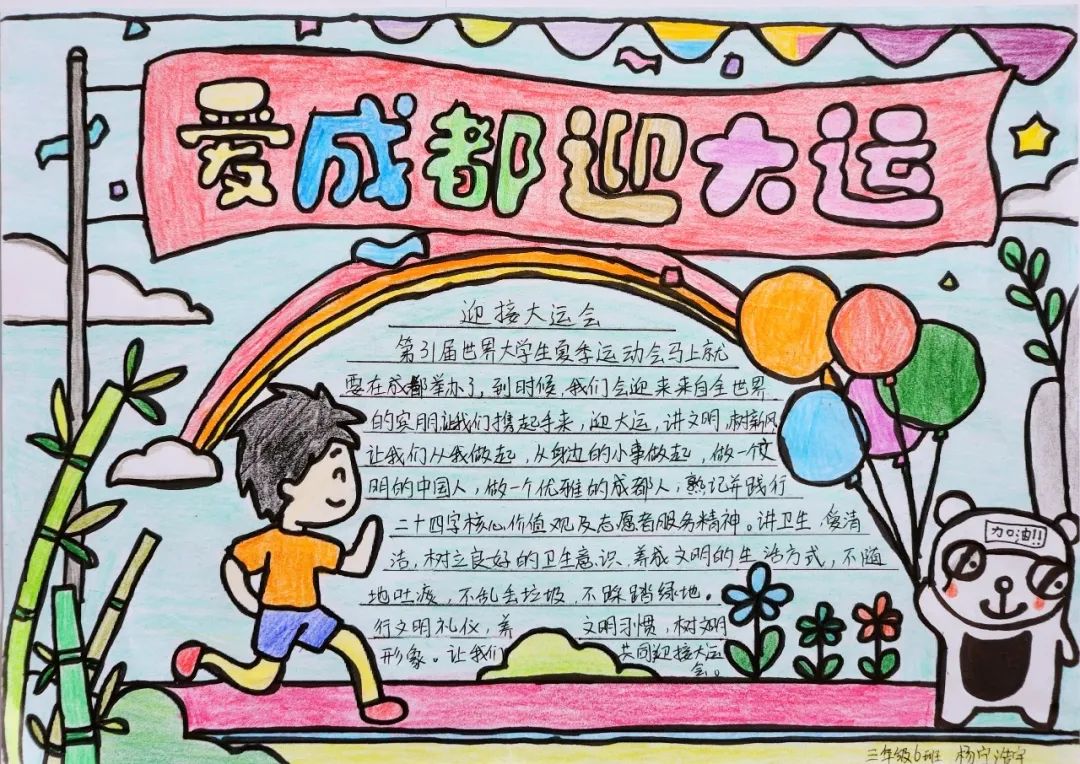 爱成都迎大运
迎接大运会
第31届世界大学生夏季运动会马上就
要在成都举办了,到时候,我们会迎来来自全世界
的宾朋让我们携起手来,迎大运,讲文明,树新风
让我们从我做起,从身边的小事做起,做一个文
明的中国人,做一个优雅的成都人,熟记并践行
二十四字核心价值观及志愿者服务精神。讲卫生,爱清
洁,树立良好的卫生意识,养成文明的生活方式,不随
地吐痰,不乱丢垃圾,不踩踏绿地。
行文明礼仪,养 文明习惯,树文明
形象。让我们 共同迎接大运
会。
加油!!
三年级6班 杨宁浩宇